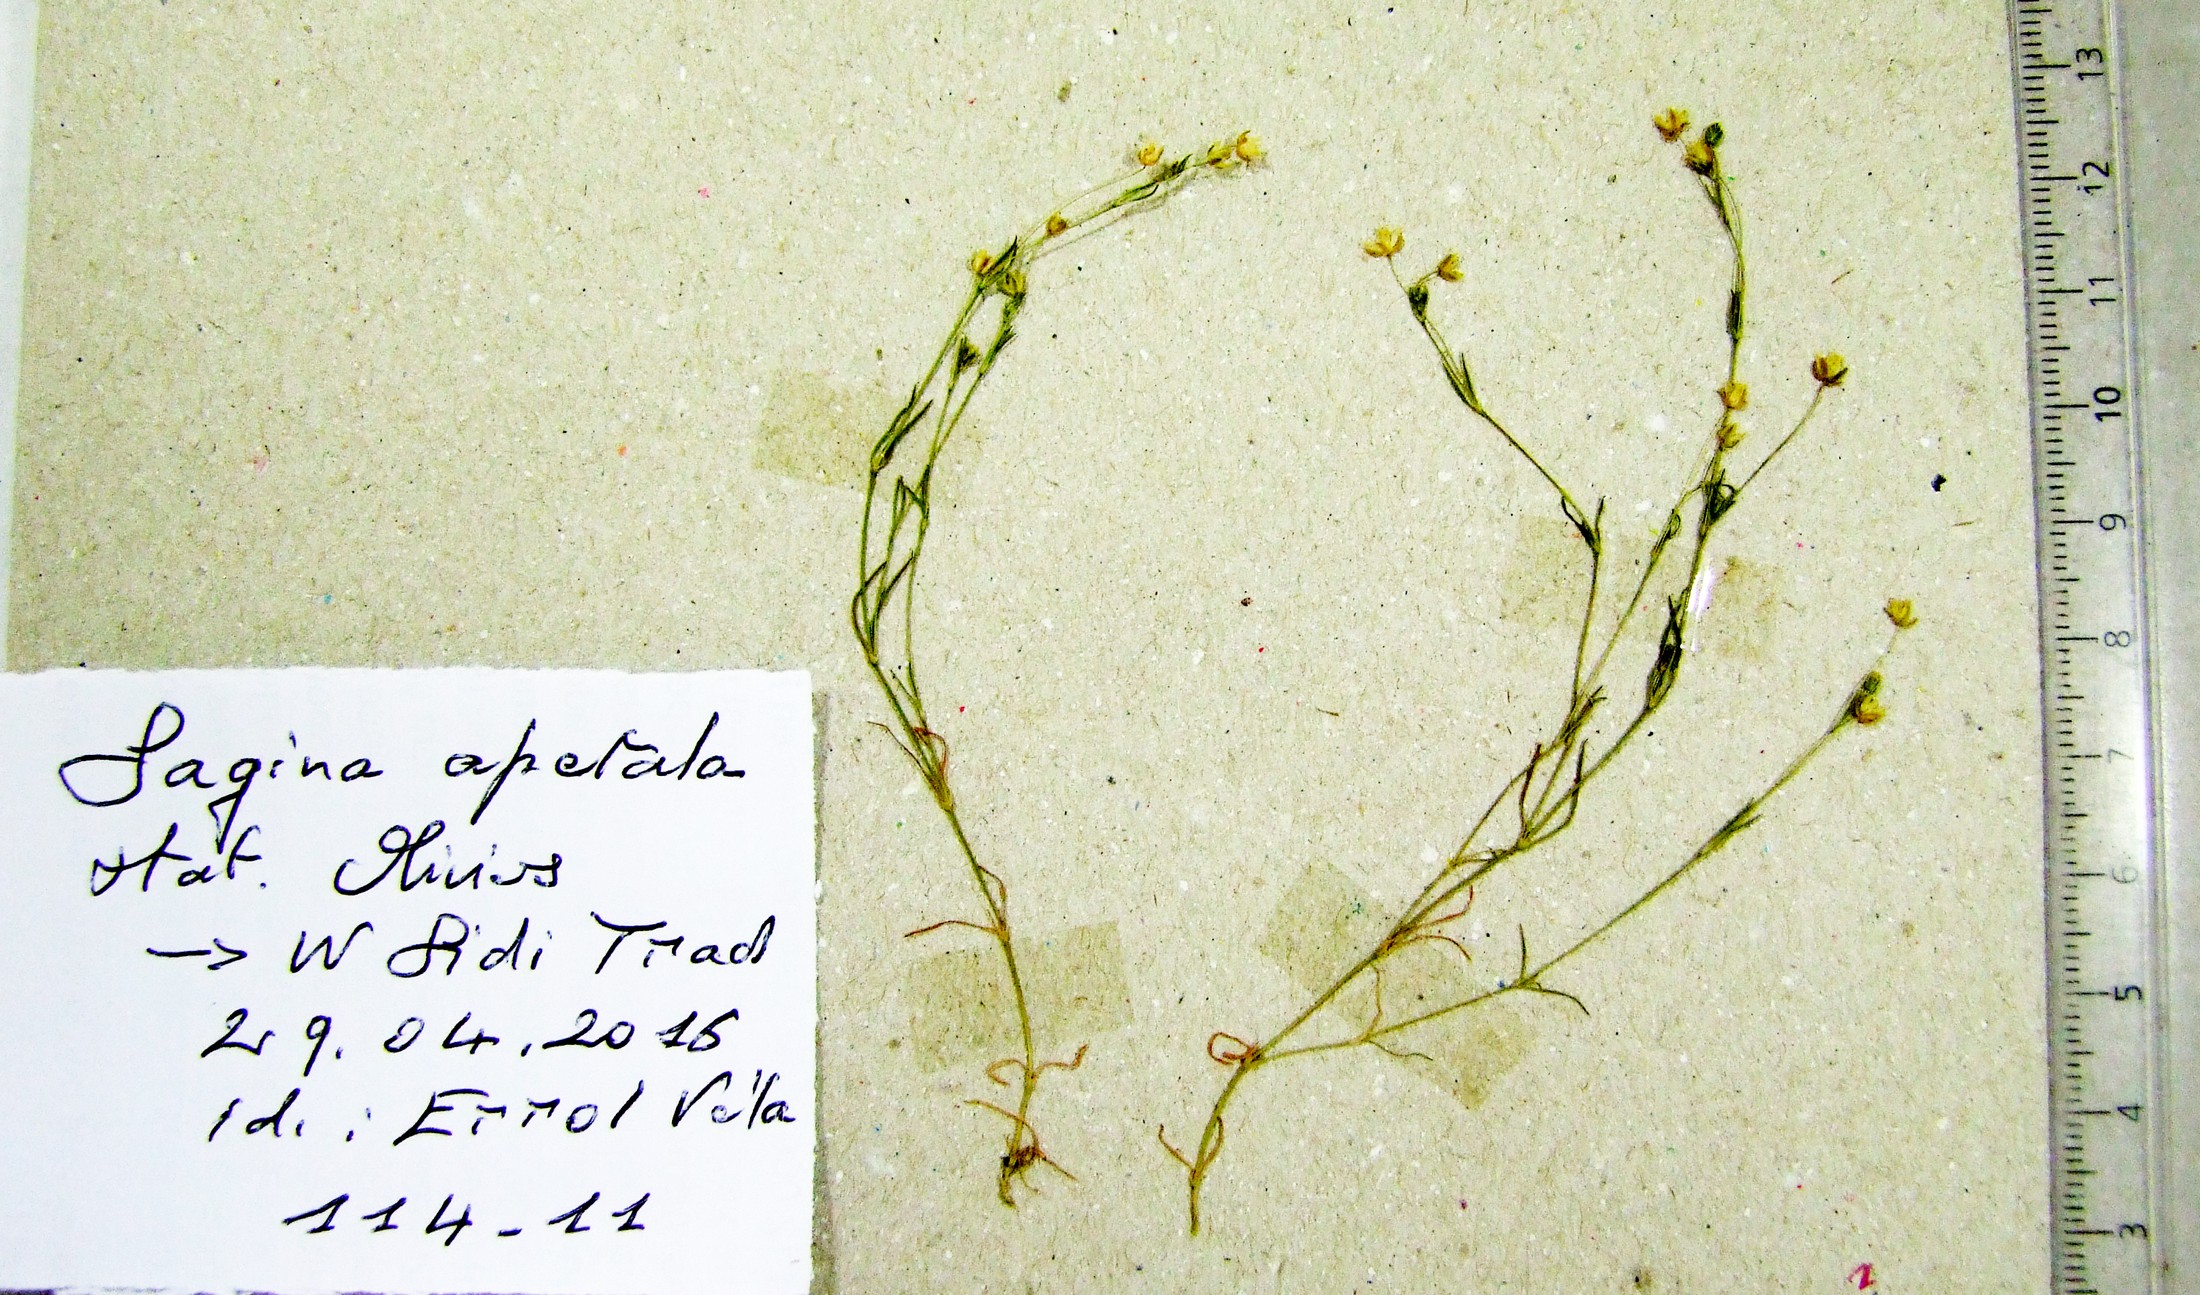 Sagina apetala
stat.
→ W Sidi Trad
29.04.2016
id. : Errol Véla
114-11
13
12
11
10
9
8
7
6
5
4
3